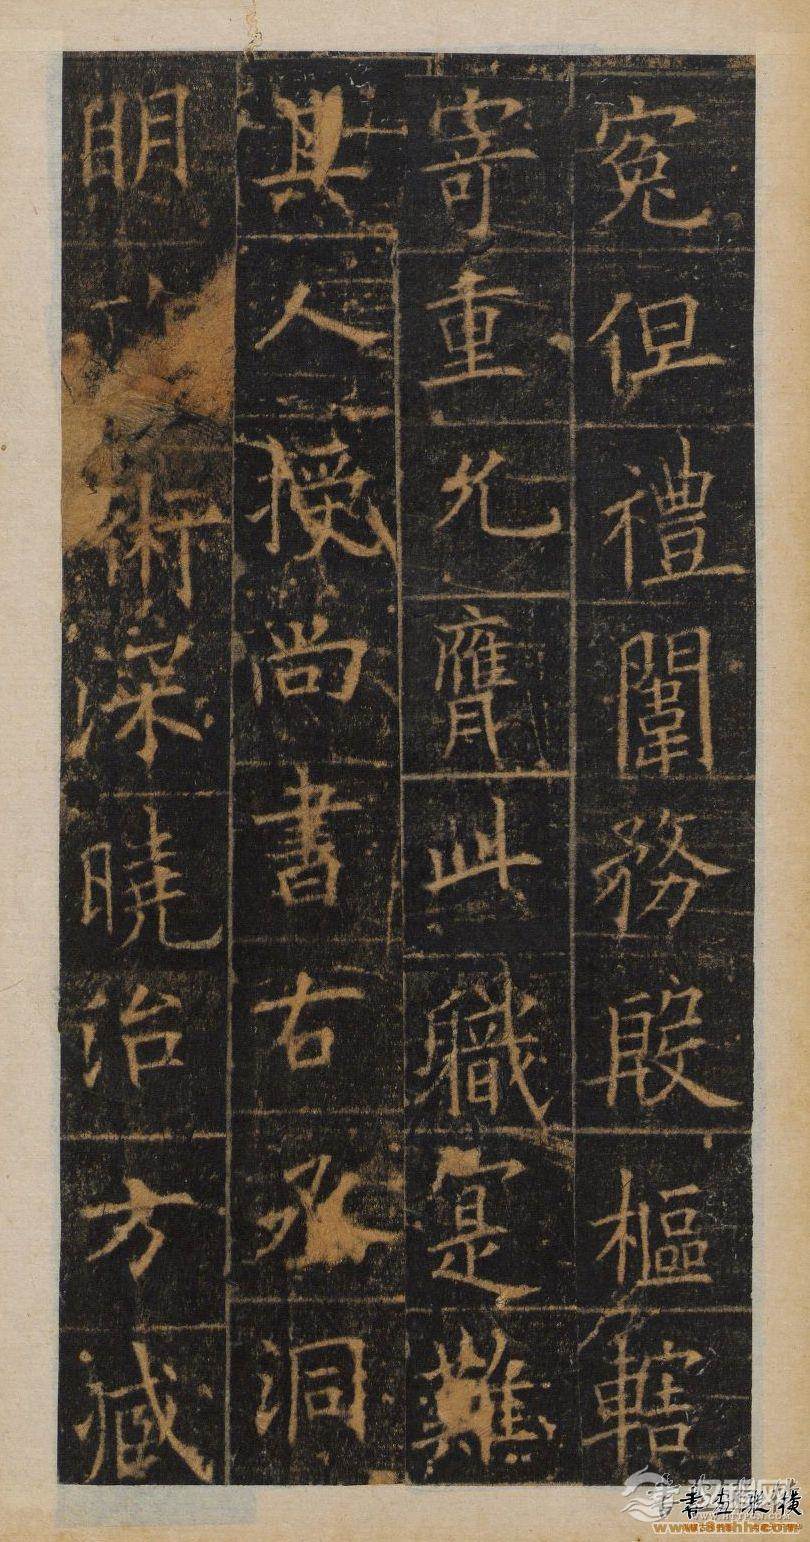 寃但禮闈務殷樞轄
寄重允膺此職寔難
其人授尚書右丞洞
明 術深曉治方臧
书画纵横
www.8mhh.com